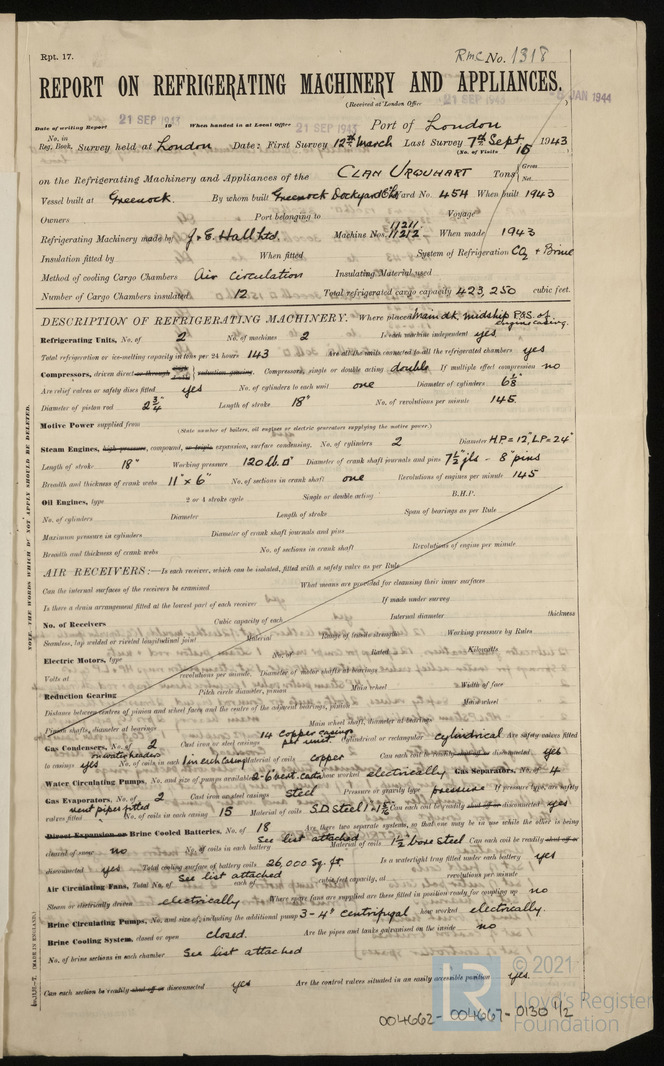 Rpt. 17.
RMC No. 1318
REPORT ON REFRIGERATING MACHINERY AND APPLIANCES.
(Received at London Office 21 SEP 1943
JAN 1944
Date of writing Report 21 SEP 1943 19 When handed in at Local Office 21 SEP 1943 Port of London
No. in Reg. Book. Survey held at London Date: First Survey 12th March Last Survey 7th Sept 1943
(No. of Visits 15
on the Refrigerating Machinery and Appliances of the CLAN URQUHART Tons { Gross Net
Vessel built at Greenock. By whom built Greenock Dockyard Co Ltd Yard No. 454 When built 1943
Owners Port belonging to Voyage
Refrigerating Machinery made by J & E Hall Ltd. Machine Nos. 11211 11212 When made 1943
Insulation fitted by When fitted System of Refrigeration CO2 + Brine
Method of cooling Cargo Chambers Air Circulation Insulating Material used
Number of Cargo Chambers insulated 12 Total refrigerated cargo capacity 423,250 cubic feet.
DESCRIPTION OF REFRIGERATING MACHINERY. Where placed Main dk. midship P&S. of engine casing.
Refrigerating Units, No. of 2 No. of machines 2 Is each machine independent yes
Total refrigeration or ice-melting capacity in tons per 24 hours 143 Are all the units connected to all the refrigerated chambers yes
Compressors, driven direct or through reduction gearing. Compressors, single or double acting double If multiple effect compression no
Are relief valves or safety discs fitted yes No. of cylinders to each unit one Diameter of cylinders 6 1/8"
Diameter of piston rod 2 3/4" Length of stroke 18" No. of revolutions per minute 145
Motive Power supplied from
(State number of boilers, oil engines or electric generators supplying the motive power.)
Steam Engines, high pressure, compound, or triple expansion, surface condensing. No. of cylinders 2 Diameter H.P = 12" L.P = 24"
Length of stroke 18" Working pressure 120 lb. □" Diameter of crank shaft journals and pins 7 1/2" jls - 8" pins
Breadth and thickness of crank webs 11" x 6" No. of sections in crank shaft one Revolutions of engines per minute 145
Oil Engines, type 2 or 4 stroke cycle Single or double acting B.H.P.
No. of cylinders Diameter Length of stroke Span of bearings as per Rule
Maximum pressure in cylinders Diameter of crank shaft journals and pins
Breadth and thickness of crank webs No. of sections in crank shaft Revolutions of engine per minute
AIR RECEIVERS:—Is each receiver, which can be isolated, fitted with a safety valve as per Rule
Can the internal surfaces of the receivers be examined What means are provided for cleansing their inner surfaces
Is there a drain arrangement fitted at the lowest part of each receiver If made under survey
No. of Receivers Cubic capacity of each Internal diameter thickness
Seamless, lap welded or riveted longitudinal joint Material Range of tensile strength Working pressure by Rules
Electric Motors, type No. of Rated Kilowatts
Volts at revolutions per minute. Diameter of motor shafts at bearings
Reduction Gearing Pitch circle diameter, pinion Main wheel Width of face
Distance between centres of pinion and wheel faces and the centre of the adjacent bearings, pinion Main wheel
Pinion shafts, diameter at bearings Main wheel shaft, diameter at bearings
Gas Condensers, No. of 2 Cast iron or steel casings 14 copper casings per unit. Cylindrical or rectangular cylindrical Are safety valves fitted
to casings on water headers yes No. of coils in each 1 in each casing Material of coils copper Can each coil be readily shut off or disconnected yes
Water Circulating Pumps, No. and size of pumps available 2-6" vert. centr how worked electrically Gas Separators, No. of 4
Gas Evaporators, No. of 2 Cast iron or steel casings steel Pressure or gravity type pressure If pressure type, are safety
valves fitted vent pipes fitted No. of coils in each casing 15 Material of coils S.D Steel Can each coil be readily shut off or disconnected yes
Direct Expansion or Brine Cooled Batteries, No. of 18 Are there two separate systems, so that one may be in use while the other is being
cleared of snow no No. of coils in each battery See list attached Material of coils 1 1/2" bore steel Can each coil be readily shut off or
disconnected yes Total cooling surface of battery coils 26,000 Sq. ft. Is a watertight tray fitted under each battery yes
Air Circulating Fans, Total No. of See list attached each of cubic feet capacity, at revolutions per minute
Steam or electrically driven electrically Where spare fans are supplied are these fitted in position ready for coupling up no
Brine Circulating Pumps, No. and size of, including the additional pump 3-4" centrifugal how worked electrically.
Brine Cooling System, closed or open closed. Are the pipes and tanks galvanised on the inside no
No. of brine sections in each chamber See list attached
Can each section be readily shut off or disconnected yes Are the control valves situated in an easily accessible position yes.
NOTE.—THE WORDS WHICH DO NOT APPLY SHOULD BE DELETED.
(MADE IN ENGLAND.)
© 2021
LR
Lloyd's Register
Foundation
004662-004667-0130 1/2